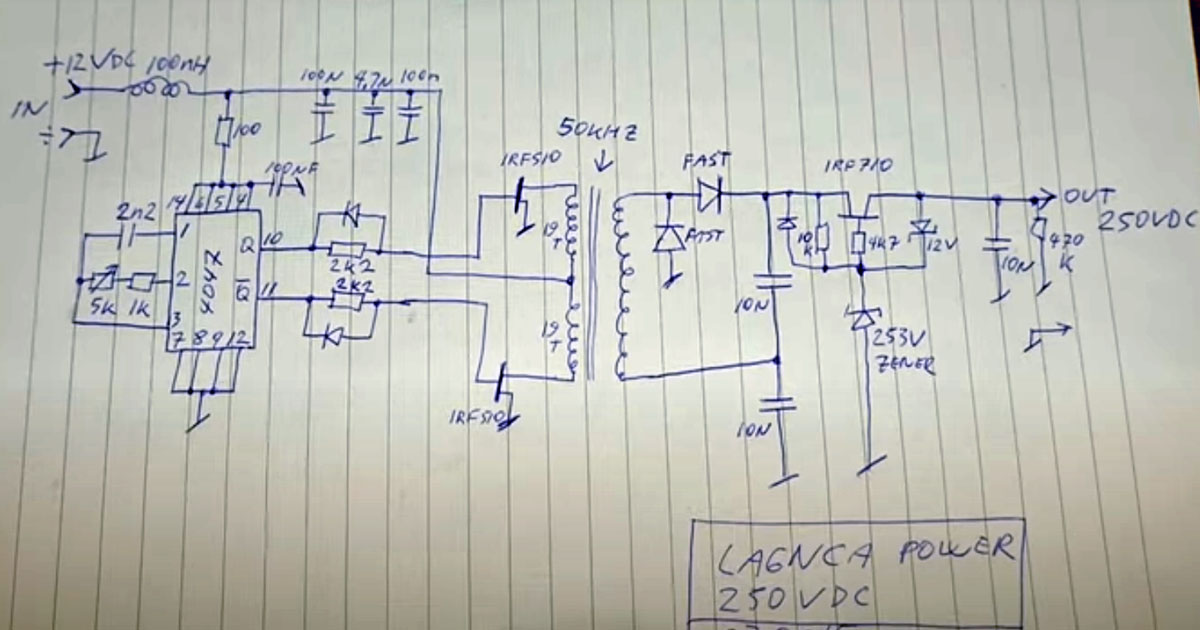 +12VDC 100mH
IN
100
100N 4,7N 100n
100NF
14 6 5 4
2n2
1
5K 1K
2
3
4047
7 8 9 12
Q 10
Q̅ 11
2k2
2k2
IRF510
IRF510
50KHZ
19
T
19
T
FAST
FAST
IRF710
10
K
4K7
12V
10N
10N
253V
ZENER
10N
470
K
OUT
250VDC
LA6NCA POWER
250VDC